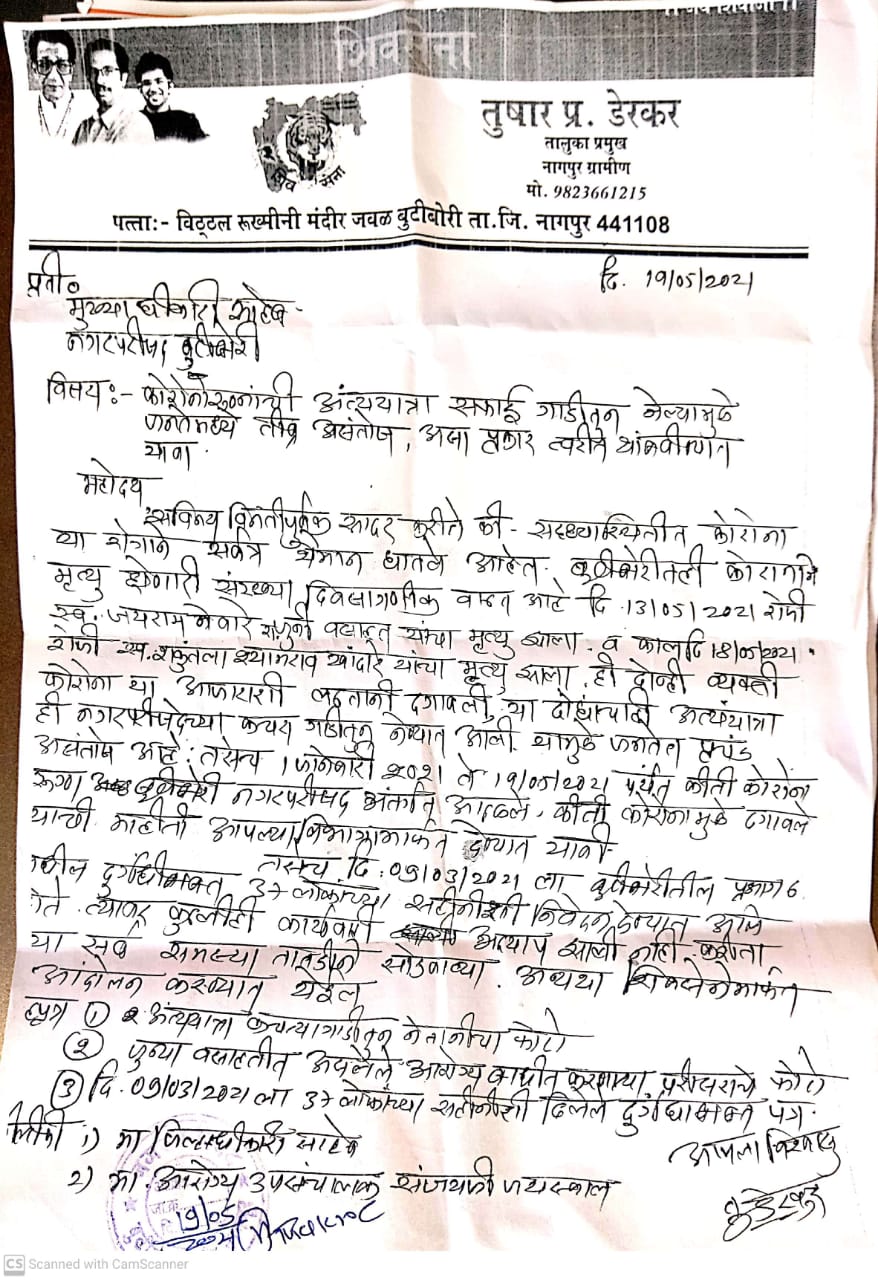 शिवसेना
शिव सेना
तुषार प्र. डेरकर
तालुका प्रमुख
नागपुर ग्रामीण
मो. 9823661215
पत्ता:- विठ्ठल रूख्मीनी मंदीर जवळ बुटीबोरी ता.जि. नागपुर 441108
दि. 19/05/2021
प्रती०
मुख्याधीकारी साहेब
नगरपरीषद बुटीबोरी
विसय:- कोरोना रुग्नांची अंत्ययात्रा सफाई गाडीतुन नेल्यामुळे
जनतेमध्ये तीव्र असंतोष, असा प्रकार त्वरीत थांबवीण्यात
यावा.
महोदय
सविनय विनंतीपुर्वक सादर करीते की - सद्ध्यास्थितीत कोरोना
या रोगाने सर्वत्र थैमान घातले आहेत. बुटीबोरीतली कोरोनाने
मृत्यु होणारी संख्या दिवसागणीक वाढत आहे दि. 13/05/2021 रोजी
स्व. जयराम नेवारे जुनी वसाहत यांचा मृत्यु झाला. व काल दि 18/05/2021.
रोजी स्व. शकुंतला श्यामराव खांदारे यांचा मृत्यु झाला. ही दोन्ही व्यक्ती
कोरोना या आजाराशी लढतांनी दगावली, या दोघांचीही अत्ययात्रा
ही नगरपरीषदेच्या कचरा गाडीतुन नेण्यात आली. यामुळे जनतेत प्रचंड
असंतोष आहे. तसेच 1 जानेवारी 2021 ते 19/05/2021 पर्यंत कीती कोरोना
रुग्ण बुटीबोरी नगरपरीषद अंतर्गत आढळले, कीती कोरोनामुळे दगावले
याची माहीती आपल्या विभागामार्फत देण्यात यावी
तसेच दि: 09/03/2021 ला बुटीबोरीतील प्रभाग 6
मधील दुर्गंधीमुक्त 37 लोकांच्या सहीनीशी निवेदन देण्यात आले
होते. त्यावर कुठलीही कार्यवाही अद्याप झाली नाही. करीता
या सर्व समस्या तातडीने सोडवाव्या. अन्यथा शिवसेनेमार्फत
आंदोलन करण्यात येईल
① अंत्ययात्रा कचऱ्यागाडीतुन नेतानीचा फोटो
② जुन्या वसाहतीत असलेले आरोग्य बाधीत करणाऱ्या परीसराचे फोटो
③ दि. 09/03/2021 ला 37 लोकांच्या सहीनीशी दिलेले दुर्गंधीमुक्त पत्र.
1) मा जिल्हाधीकारी साहेब
आपला विश्वासु
2) मा. आरोग्य उपसंचालक संजयजी जयस्वाल
19/05
2021
CS Scanned with CamScanner